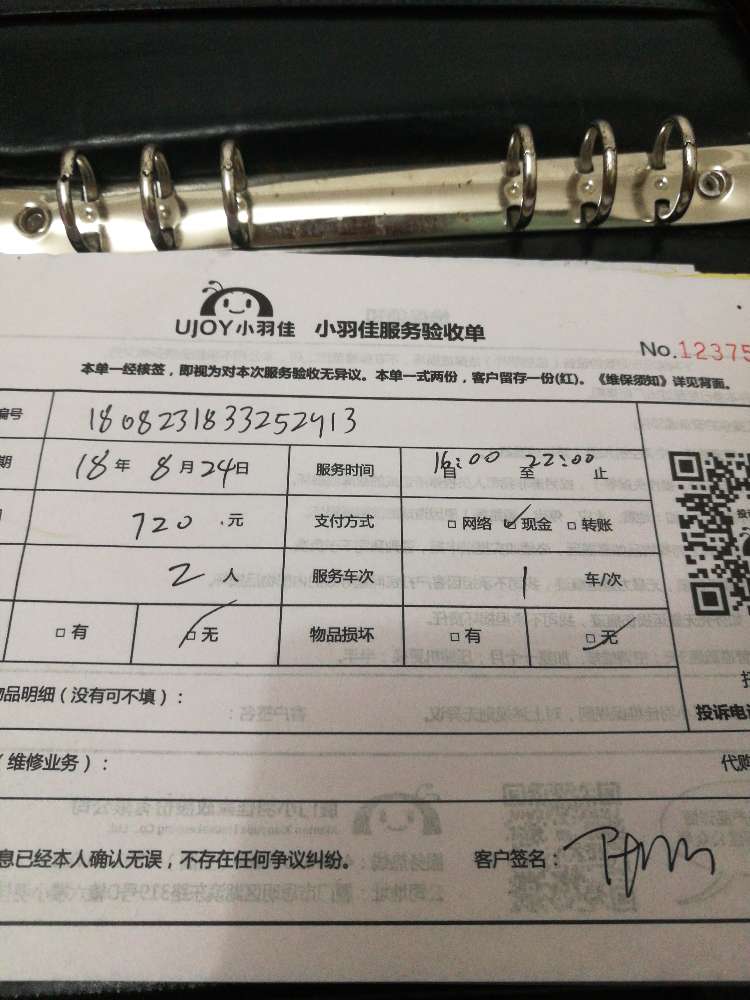 UJOY小羽佳 小羽佳服务验收单
No.12375
本单一经核签，即视为对本次服务验收无异议。本单一式两份，客户留存一份(红)。《维保须知》详见背面。
编号 1808231833252913
期 18年8月24日 服务时间 自16:00至22:00止
720.元 支付方式 □网络 ✓现金 □转账
2人 服务车次 1车/次
□有 □无 物品损坏 □有 □无
物品明细（没有可不填）：
投诉电
（维修业务）： 代购
息已经本人确认无误，不存在任何争议纠纷。 客户签名：